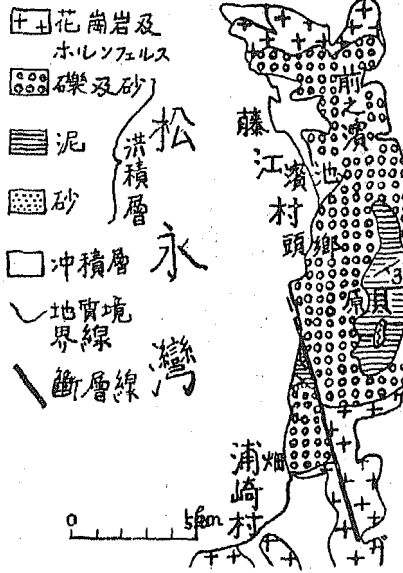 花崗岩及
ホルンフェルス
礫及砂
泥
砂
洪積層
冲積層
地質境
界線
斷層線
松永灣
藤江村
前之濱
濱頭
池鄉
原貝
3
浦崎村
畑
0
5km